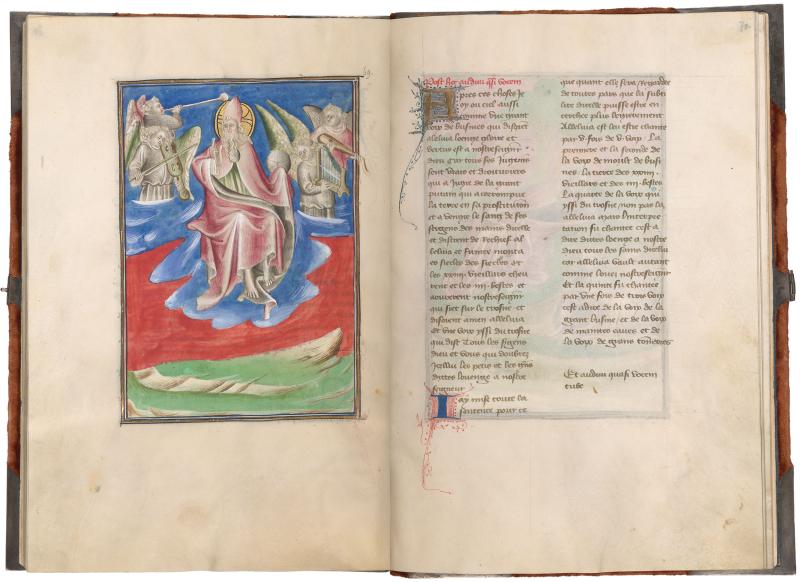 Post hec audiui q̃si vocem
Apres ces choses ie
oy ou ciel aussi
comme une grant
voix de busines qui disoit
alleluia loenge glore et
vertus est a nostreseigñr
dieu Car tous ses jugemẽs
sont vrais et droituriers
qui a jugie de la grant
putain qui a corrompue
la terre en sa prostitutiõn
et a vengie le sang de ses
sergens des mains dicelle
et distrent de rechief al
leluia et fumee monta
es siecles des siecles et
les xxiiii vieillars cheu
rent et les iiii bestes et
aourerent nostreseigñr
qui siet sur le trosne et
disoient amen alleluia
et une voix yssi du trosne
qui dist Tous les sergens
dieu et vous qui doubtez
Icellui les petis et les grãs
dittes louenge a nostre
seigneur
Iay mise toute la
sentence pour ce
que quant elle sera regardee
de toutes pars que la subti
lite dicelle puisse estre en
cerchee plus legierement
Alleluia est ou estre chante
par v fois de v voix La
premiere et la seconde de
la voix de moult de busi
nes la tierce des xxiiii
vieillars et des iiii bestes
La quarte de la voix qui
yssi du trosne non pas la
alleluia mais linterpre
tation fu chantee cest a
dire dittes loenge a nostre
dieu tous les sains dicellui
car alleluia vault autant
comme louez nostreseigñr
et la quinte fu chantee
par une fois de trois voix
cest adire de la voix de la
grant busine et de la voix
de maintes eaues et de
la voix de grans tõnerres
Et audiui quasi vocem
tube